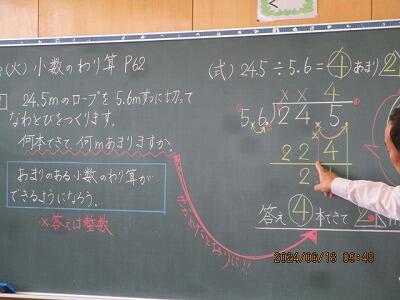 (火) 小数のわり算 P62
24.5mのロープを 5.6mずつに切って
なわとびをつくります。
何本できて、何mあまりますか。
あまりのある小数のわり算が
できるようになろう。
※答えは整数
(式) 24.5÷5.6=④あまり2
× × 4
5.6)24 5
22 4
2
答え ④本できて
2024/06/18 09:48